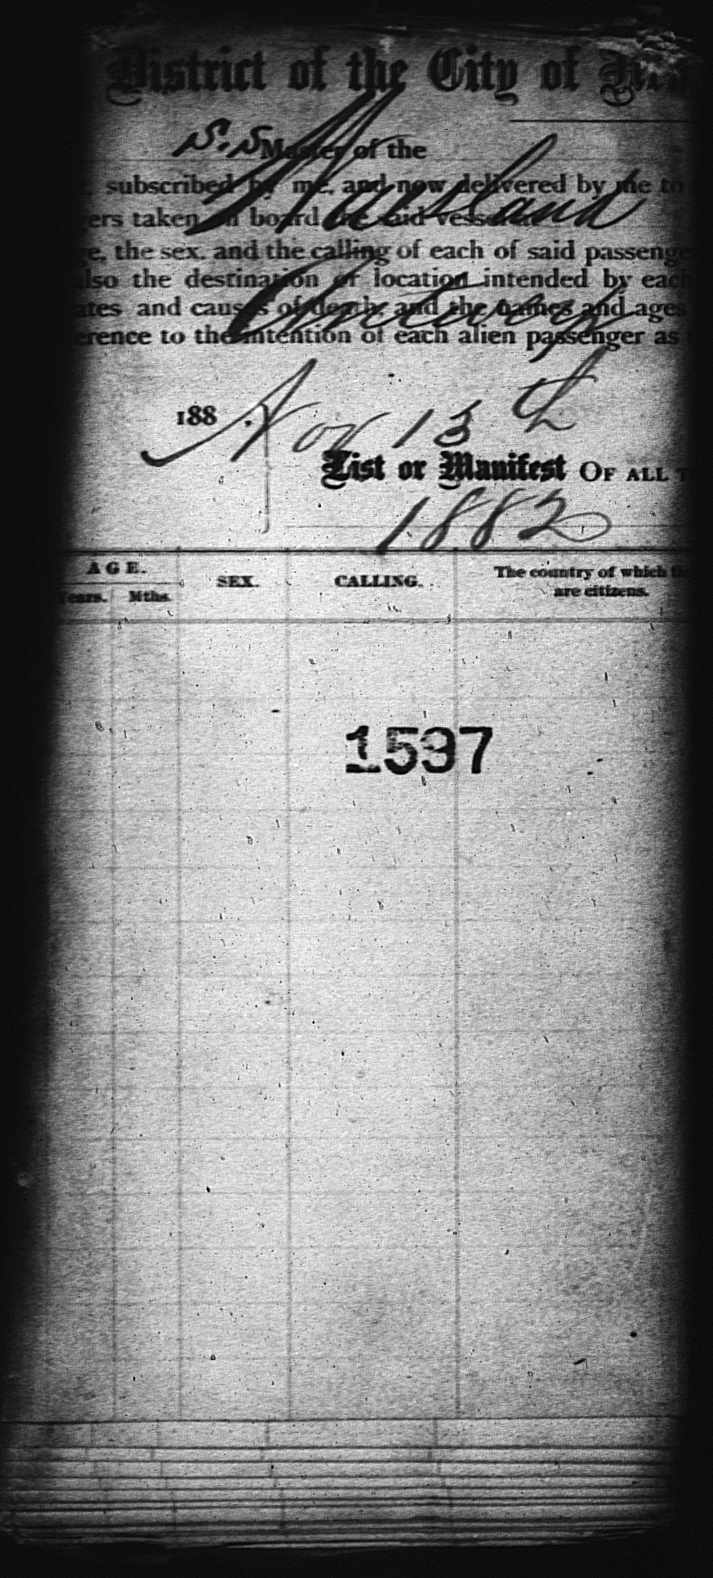 District of the City of
S.S. Master of the
Waesland
subscribed by me, and now delivered by me to
ers taken on board the said vessel
e, the sex, and the calling of each of said passenge
lso the destination or location intended by each
ates and causes of death, and the names and ages
Antwerp
erence to the intention of each alien passenger as
188 .
Nov 13th
List or Manifest OF ALL T
1882
AGE.
SEX.
CALLING.
The country of which th
are citizens.
Years.
Mths.
1597